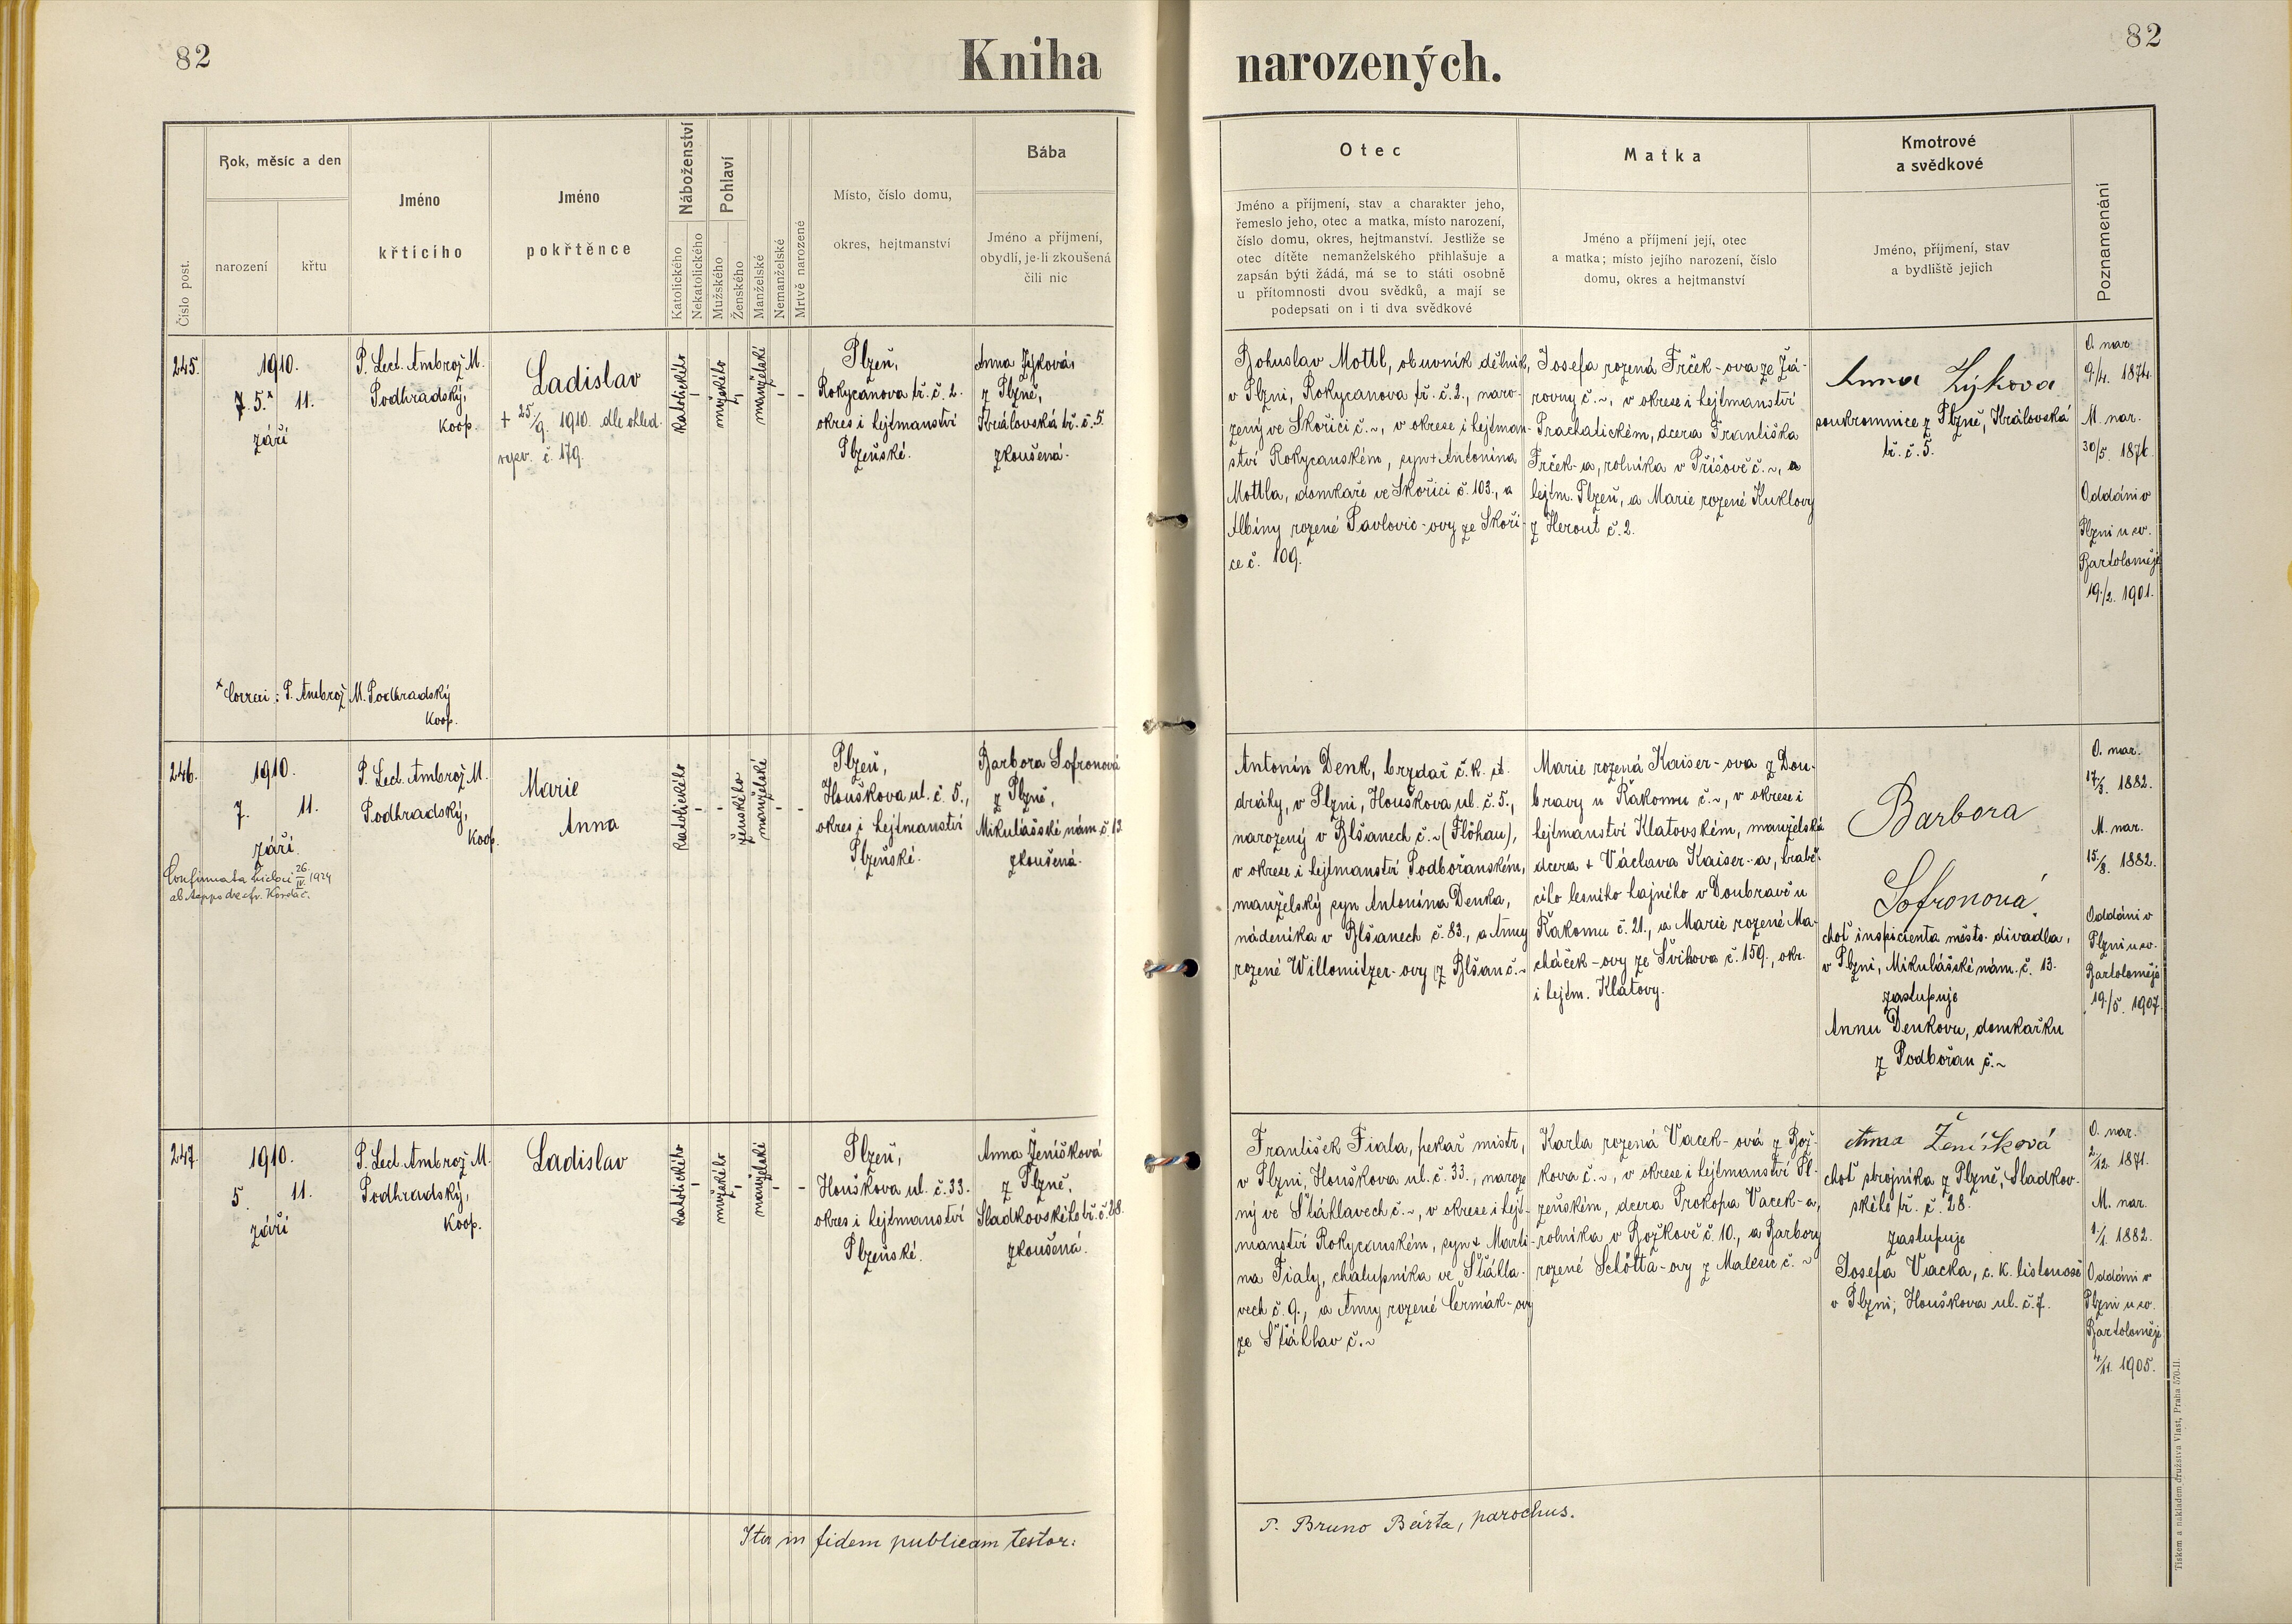 82
Kniha
narozených.
82
Číslo post.
Rok, měsíc a den
narození
křtu
Jméno
křticího
Jméno
pokřtěnce
Náboženství
Katolického
Nekatolického
Pohlaví
Mužského
Ženského
Manželské
Nemanželské
Mrtvě narozené
Místo, číslo domu,
okres, hejtmanství
Bába
Jméno a příjmení,
obydlí, je-li zkoušená
čili nic
Otec
Jméno a příjmení, stav a charakter jeho,
řemeslo jeho, otec a matka, místo narození,
číslo domu, okres, hejtmanství. Jestliže se
otec dítěte nemanželského přihlašuje a
zapsán býti žádá, má se to státi osobně
u přítomnosti dvou svědků, a mají se
podepsati on i ti dva svědkové
Matka
Jméno a příjmení její, otec
a matka; místo jejího narození, číslo
domu, okres a hejtmanství
Kmotrové
a svědkové
Jméno, příjmení, stav
a bydliště jejich
Poznamenání
245.
1910.
7. 5.x 11.
září
P. Lect. Ambrož M.
Podhradský,
koop.
Ladislav
+ 25/9. 1910. dle ohled.
č. 179.
katolického
-
mužského
-
manželské
-
-
Plzeň,
Rokycanova tř. č. 2.
okres i hejtmanství
Plzeňské.
Anna Zýková,
z Plzně,
Královská tř. č. 5.
zkoušená.
Bohuslav Mottl, obuvník dělník,
v Plzni, Rokycanova tř. č. 2., naro-
zený ve Skořici č. ~, v okrese i hejtman-
ství Rokycanském, syn + Antonína
Mottla, domkaře ve Skořici č. 103., a
Albíny rozené Pavlovic-ovy ze Skoři-
ce č. 109.
Josefa rozená Frček-ova ze Žá-
rovny č. ~, v okrese i hejtmanství
Prachatickém, dcera Františka
Frček-a, rolníka v Příšově č. ~, a
hejtm. Plzeň, a Marie rozené Kuklovy
z Herout č. 2.
Anna Zýková
soukromnice z Plzně, Královská
tř. č. 5.
O. nar.
9/4. 1874.
M. nar.
30/5. 1876.
Oddáni v
Plzni u sv.
Bartoloměje
19./2. 1901.
x Correxi: P. Ambrož M. Podhradský
koop.
246.
1910.
7. 11.
září.
Confirmata 26/IV. 1924
Kordač.
P. Lect. Ambrož M.
Podhradský,
koop.
Marie
Anna
katolického
-
-
ženského
manželské
-
-
Plzeň,
Houškova ul. č. 5.,
okres i hejtmanství
Plzeňské.
Barbora Sofronová
z Plzně,
Mikulášské nám. č. 13.
zkoušená.
Antonín Denk, brzdař č. k. st.
dráhy, v Plzni, Houškova ul. č. 5.,
narozený v Blšanech č. ~ (Flöhau),
v okrese i hejtmanství Podbořanském,
manželský syn Antonína Denka,
nádeníka v Blšanech č. 83., a Anny
rozené Willomitzer-ovy z Blšan č. ~
Marie rozená Kaiser-ova z Dou-
bravy u Řakomu č. ~, v okrese i
hejtmanství Klatovském, manželská
dcera + Václava Kaiser-a, hrabě-
cího lesního hajného v Doubravě u
Řakomu č. 21., a Marie rozené Ma-
cháček-ovy ze Švihova č. 159., okr.
i hejtm. Klatovy.
Barbora
Sofronová,
choť inspicienta městs. divadla,
v Plzni, Mikulášské nám. č. 13.
zastupuje
Annu Denkovu, domkařku
z Podbořan č. ~
O. nar.
17/3. 1882.
M. nar.
15./8. 1882.
Oddáni v
Plzni u sv.
Bartoloměje
19./5. 1907.
247.
1910.
5. 11.
září
P. Lect. Ambrož M.
Podhradský,
koop.
Ladislav
katolického
-
mužského
-
manželské
-
-
Plzeň,
Houškova ul. č. 33.
okres i hejtmanství
Plzeňské.
Anna Ženíšková
z Plzně,
Sladkovského tř. č. 28.
zkoušená.
František Fiala, pekař mistr,
v Plzni, Houškova ul. č. 33., naroze-
ný ve Šťáhlavech č. ~, v okrese i hejt-
manství Rokycanském, syn + Marti-
na Fialy, chalupníka ve Šťáhla-
vech č. 9., a Anny rozené Čermák-ovy
ze Šťáhlav č. ~
Karla rozená Vacek-ová z Bož-
kova č. ~, v okrese i hejtmanství Pl-
zeňském, dcera Prokopa Vacek-a,
rolníka v Božkově č. 10., a Barbory
rozené Schötta-ovy z Malesic č. ~
Anna Ženíšková
choť strojníka z Plzně, Sladkov-
ského tř. č. 28.
zastupuje
Josefa Vacka, c. k. listonoše
v Plzni, Houškova ul. č. 7.
O. nar.
2./12. 1871.
M. nar.
1/1. 1882.
Oddáni v
Plzni u sv.
Bartoloměje
4/11. 1905.
Ita in fidem publicam testor:
P. Bruno Bárta, parochus.
Tiskem a nákladem družstva Vlast, Praha 570-II.